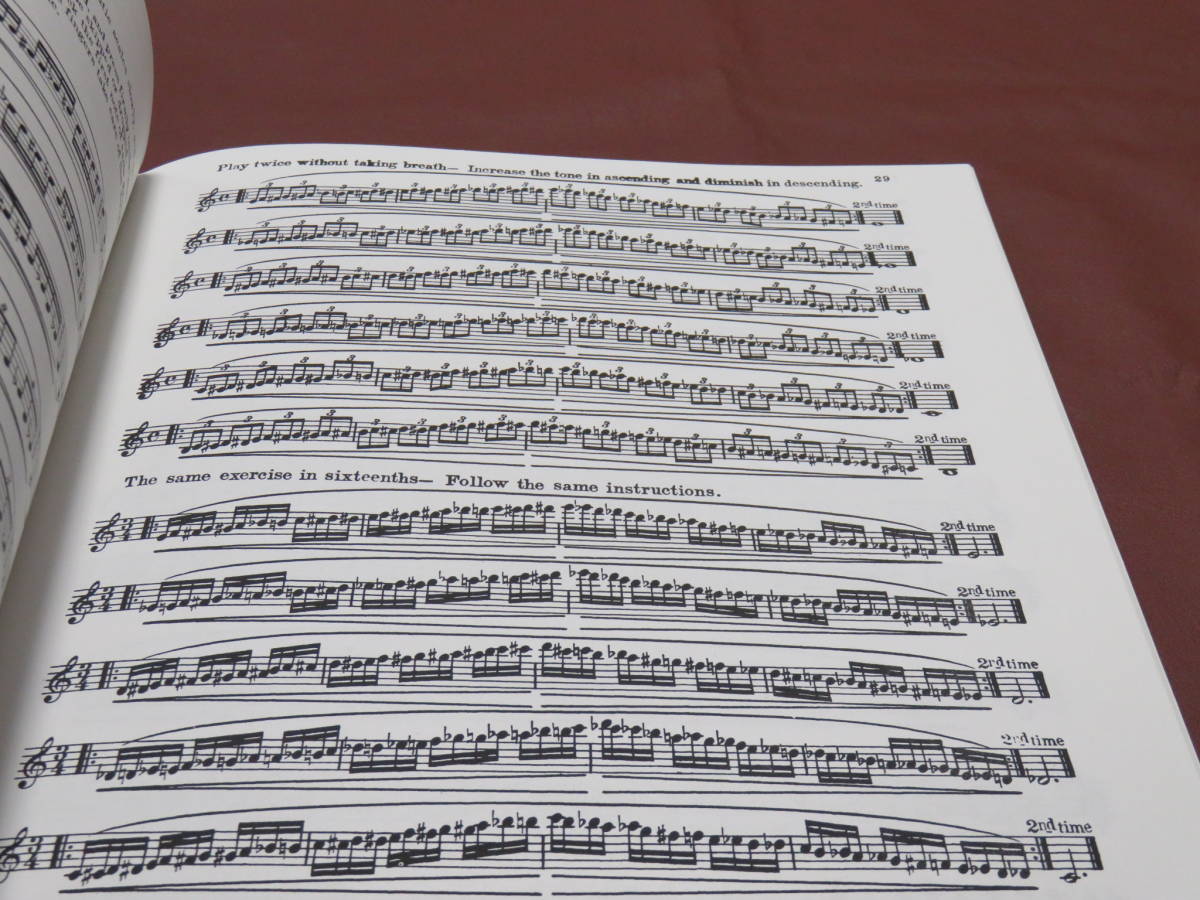 Play twice without taking breath— Increase the tone in ascending and diminish in descending.
29
2nd time
2nd time
2nd time
2nd time
2nd time
2nd time
The same exercise in sixteenths— Follow the same instructions.
2nd time
2nd time
2nd time
2nd time
2nd time